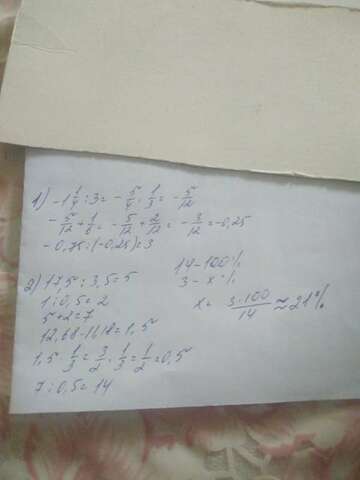 1) -1 1/4 : 3 = - 5/4 · 1/3 = - 5/12
- 5/12 + 1/6 = - 5/12 + 2/12 = - 3/12 = -0,25
-0,75 : (-0,25) = 3
2) 17,5 : 3,5 = 5
1 : 0,5 = 2
5 + 2 = 7
12,68 - 11,18 = 1,5
1,5 · 1/3 = 3/2 · 1/3 = 1/2 = 0,5
7 : 0,5 = 14
14 - 100%
3 - x %
x = 3·100/14 ≈ 21%